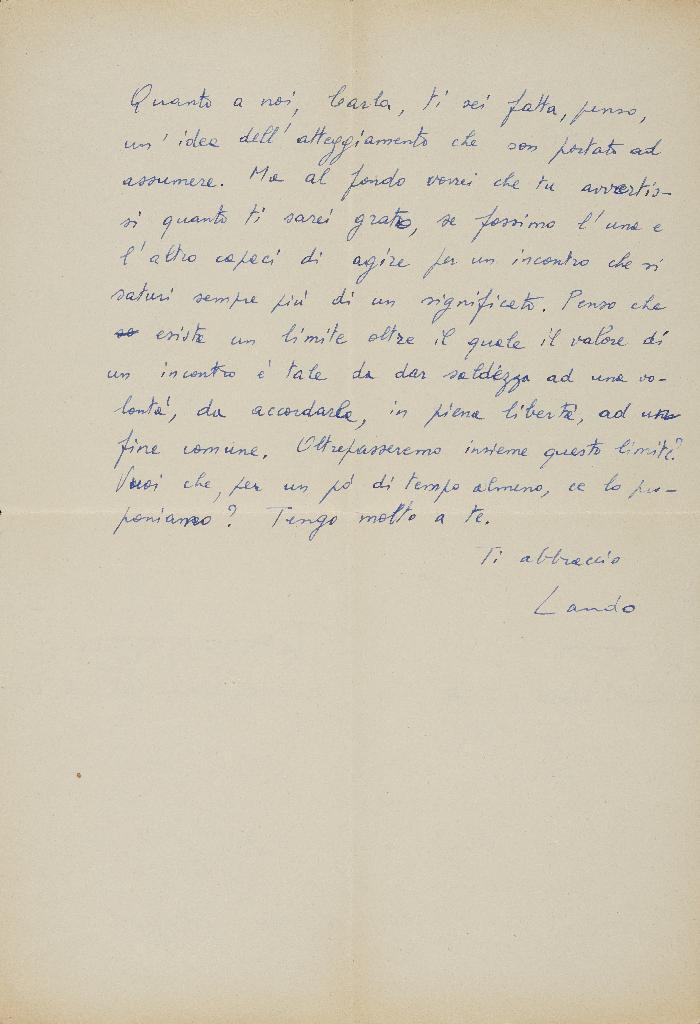 Quanto a noi, Carla, ti sei fatta, penso,
un' idea dell' atteggiamento che son portato ad
assumere. Ma al fondo vorrei che tu avvertis-
si quanto ti sarei grato, se fossimo l'una e
l'altro capaci di agire per un incontro che si
saturi sempre più di un significato. Penso che
esista un limite oltre il quale il valore di
un incontro è tale da dar saldezza ad una vo-
lontà, da accordarla, in piena libertà, ad un
fine comune. Oltrepasseremo insieme questo limite?
Vuoi che, per un pó di tempo almeno, ce lo pro-
poniamo? Tengo molto a te.
Ti abbraccio
Lando